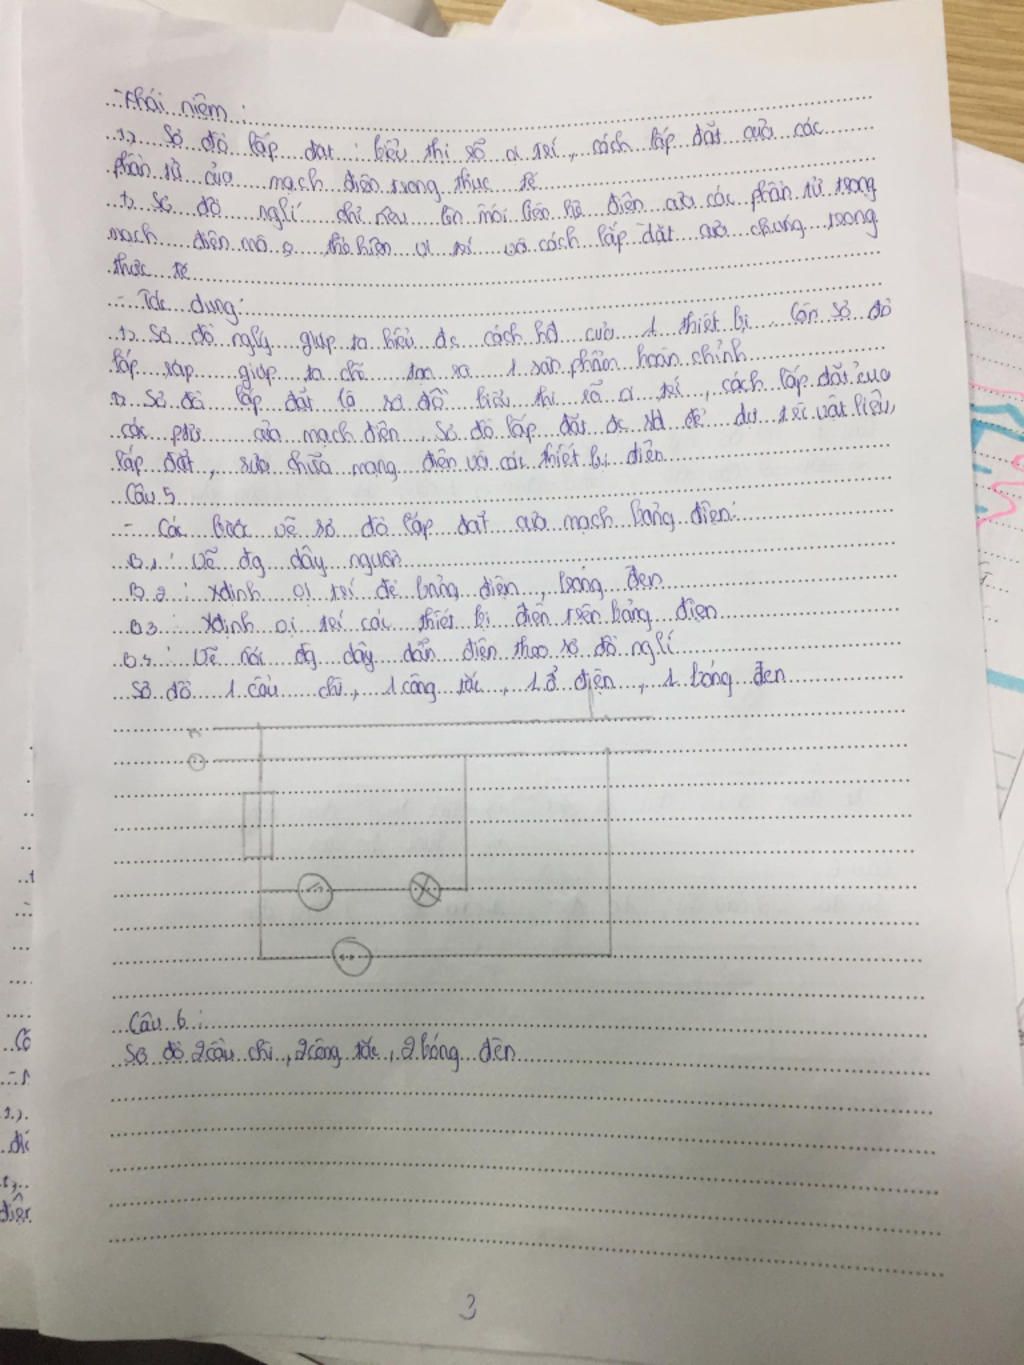 - Khái niệm :
1, Sơ đồ lắp đặt : biểu thị rõ vị trí, cách lắp đặt của các
phần tử của mạch điện trong thực tế
2, Sơ đồ nglí chỉ nêu lên mối liên hệ điện của các phần tử trong
mạch điện mà thể hiện vị trí và cách lắp đặt của chúng trong
thực tế
- Tác dụng:
1, Sơ đồ nglý giúp ta hiểu đc cách hđ của 1 thiết bị. Còn sơ đồ
lắp ráp giúp ta chế tạo ra 1 sản phẩm hoàn chỉnh
2, Sơ đồ lắp đặt là sơ đồ biểu thị rõ vị trí, cách lắp đặt của
các ptử của mạch điện. Sơ đồ lắp đặt đc sd để dự trù vật liệu,
lắp đặt, sửa chữa mạng điện và các thiết bị điện
Câu 5
- Các bước vẽ sơ đồ lắp đặt của mạch bảng điện:
B1: Vẽ đg dây nguồn
B2: xđịnh vị trí để bảng điện, bóng đen
B3: xđịnh vị trí các thiết bị điện trên bảng điện
B4: Vẽ nối đg dây dẫn điện theo sơ đồ nglí
Sơ đồ 1 cầu chì, 1 công tắc, 1 ổ điện, 1 bóng đen
Câu 6:
Sơ đồ 2 cầu chì, 2 công tắc, 2 bóng đèn
3